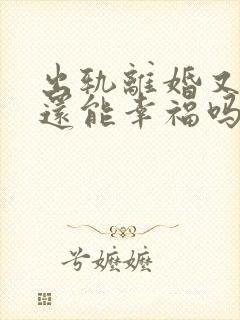 出轨離婚又
還能幸福吗
兮嬷嬷